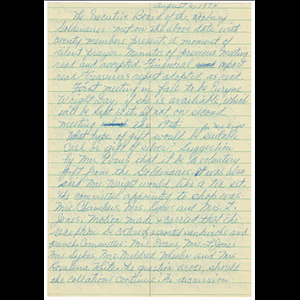 August 6, 1974
The Executive Board of the Roxbury
Goldenaires met on the above date with
twenty members present. A moment of
silent prayer. Minutes of previous meeting
read and accepted. Financial report
read. Treasurer's report adopted as read.
First meeting in fall to be
Wright Day, if she is available, which
will be Sept. if not on second
meeting the
What type of gift would be suitable
Cash or gift of silver? Suggestion
by Mrs. Evans that it be a voluntary
gift from the Goldenaires. It was also
said Mrs. Wright would like a tea set.
The committee appointed to shop was
Mrs. Chambers, Mrs. Sykes and Mrs. F.
Jones. Motion made & carried that the
reception be catered, assorted sandwiches and
punch. Committee: Mrs. Evans, Mrs. F. Jones
Mrs. Sykes, Mrs. Mildred Wheeler and Mrs.
White. The question arose, should
the collation continue. A discussion